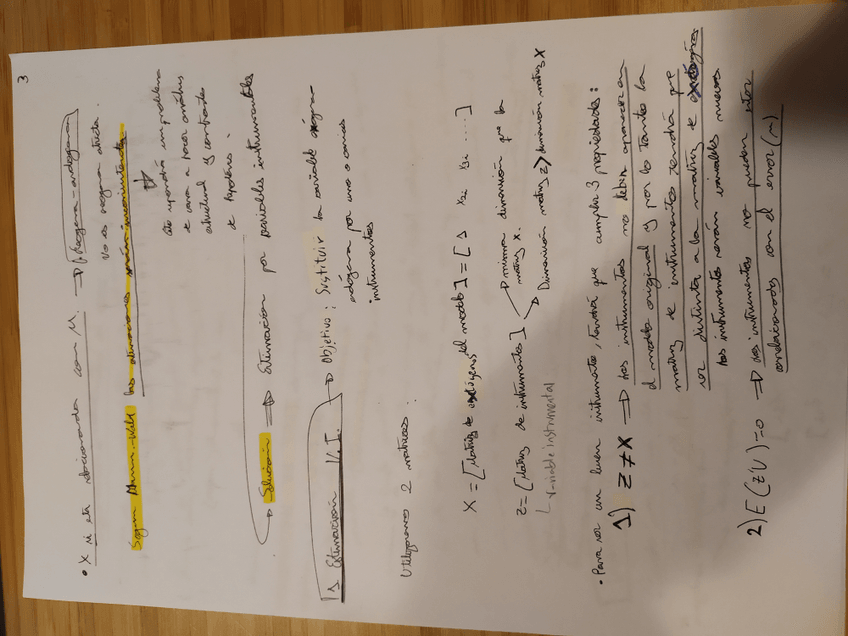 3
• X si está relacionada con M. → Regresora endógena
Según Mann-Wald las estimaciones serán inconsistentes
esto supondrá un problema
de cara a hacer análisis
estructural y contraste
de hipótesis.
Solución → Estimación por variables instrumentales
1) Estimación V.I. → Objetivo: Sustituir la variable
endógena por una o varias
instrumentos
Utilizaremos 2 matrices:
X = [Matriz de del modelo] = [1 X2i X3i ....]
Z = [Matriz de instrumentos] → misma dimensión que la
matriz X.
→ Dimensión matriz Z > dimensión matriz X
Variable instrumental
• Para ser un buen instrumento, tendrá que cumplir 3 propiedades:
1) Z ≠ X → Los instrumentos no deben aparecer en
el modelo original y por lo tanto la
matriz de instrumentos tendrá que
ser distinta a la matriz de
Los instrumentos serán variables nuevas
2) E(Z'U)=0 → Los instrumentos no pueden estar
correlacionados con el error (u)